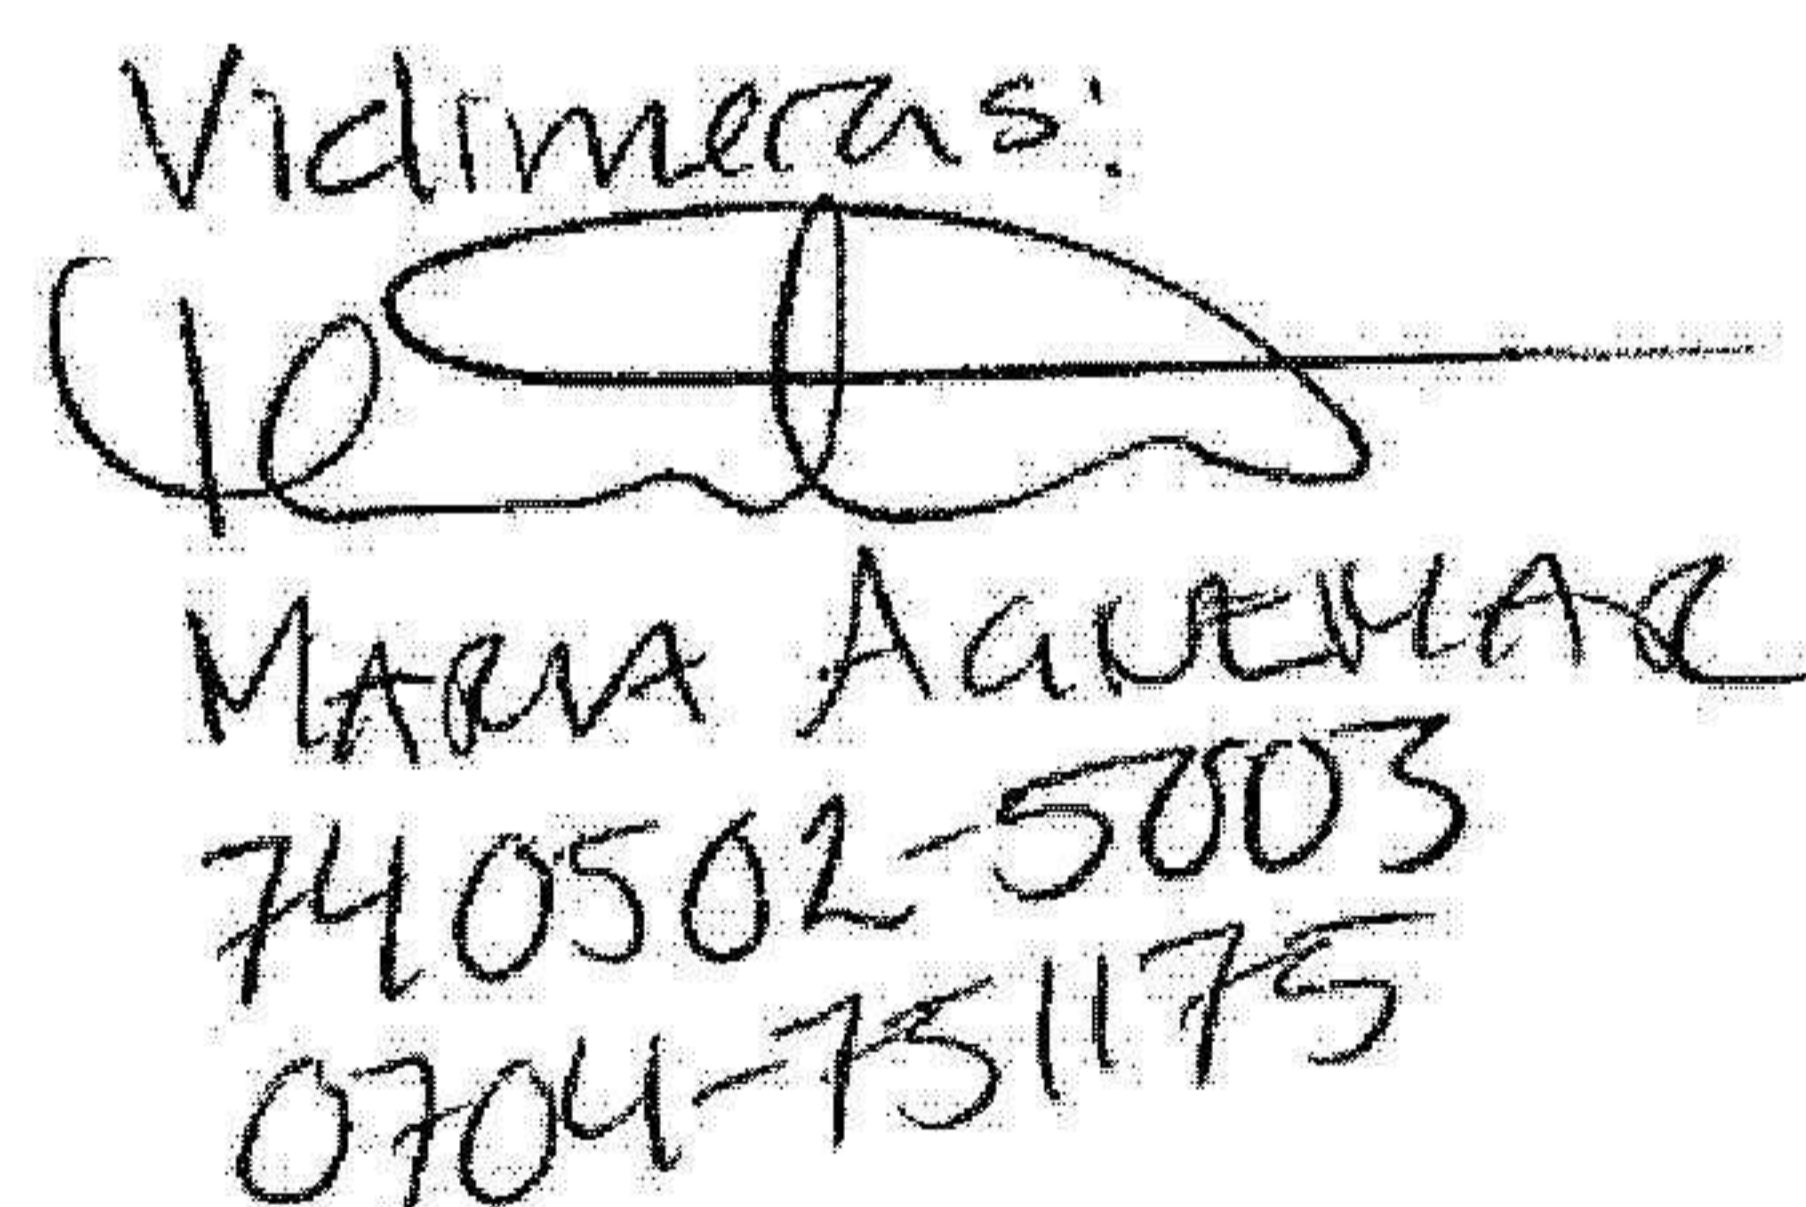 Vidimeras:
MARIA
740502-5003
0704-751175